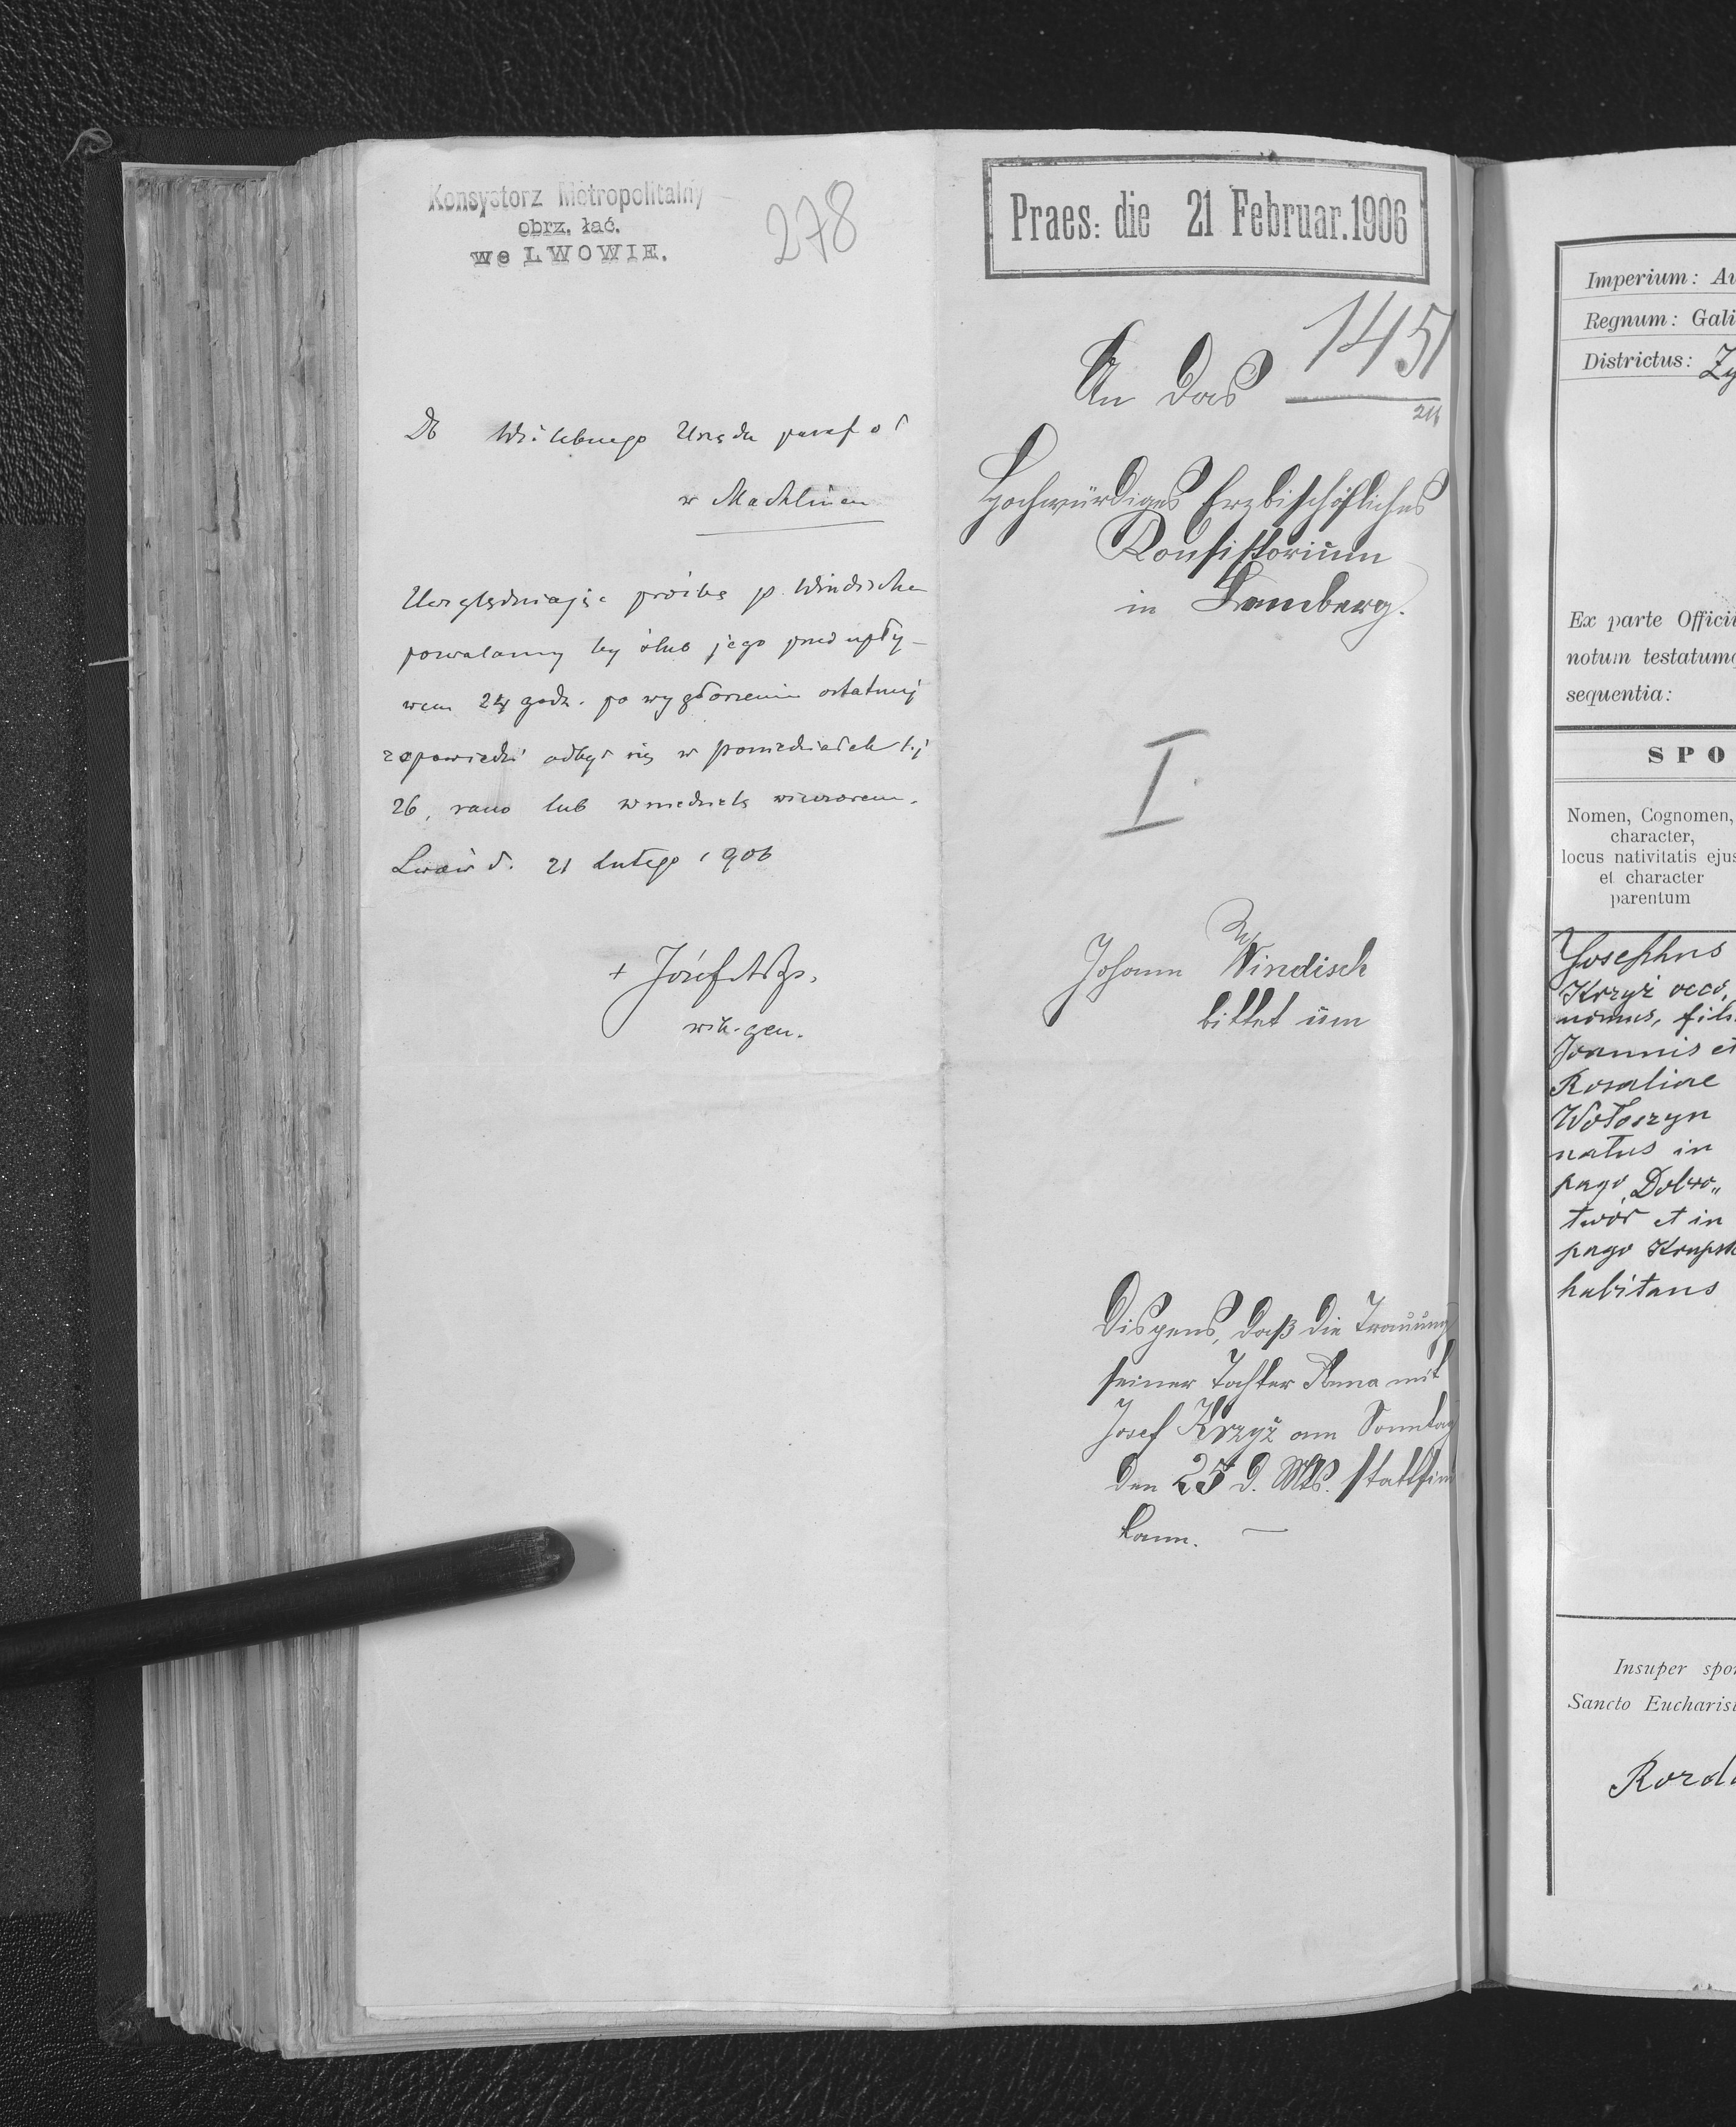 Konsystorz Metropolitalny
obrz. łać.
we LWOWIE.
278
Do Wielebnego Urzędu paraf o
w Machlińcu
Uwzględniając prośbę p. Windischa
pozwalamy by ślub jego przed upły-
wem 24 godz. po wygłoszeniu ostatniej
zapowiedzi odbył się w poniedziałek t.j
26, rano lub w niedzielę wieczorem.
Lwów d. 21 Lutego 1906
+ Józef
wik. gen.
Praes: die 21 Februar.1906
1451
An das
Hochwürdiges Erzbischöfliches
Konsistorium
in Lemberg.
I.
Johann Windisch
bittet um
Dispens, daß die Trauung
seiner Tochter Anna mit
Josef Krzyż am Sonntag
den 25 d. Mts. stattfin
kann. —
Imperium: Au
Regnum: Gali
Districtus: Zy
Ex parte Officii
notum testatumq
sequentia:
SPO
Nomen, Cognomen,
character,
locus nativitatis ejus
et character
parentum
Josephus
Krzyż occo,
nomus, fili
Joannis et
Rosaliae
Wołoszyn
natus in
pago Dobro„
twór et in
pago Krupsk
habitans
Insuper spo
Sancto Eucharist
Rozd